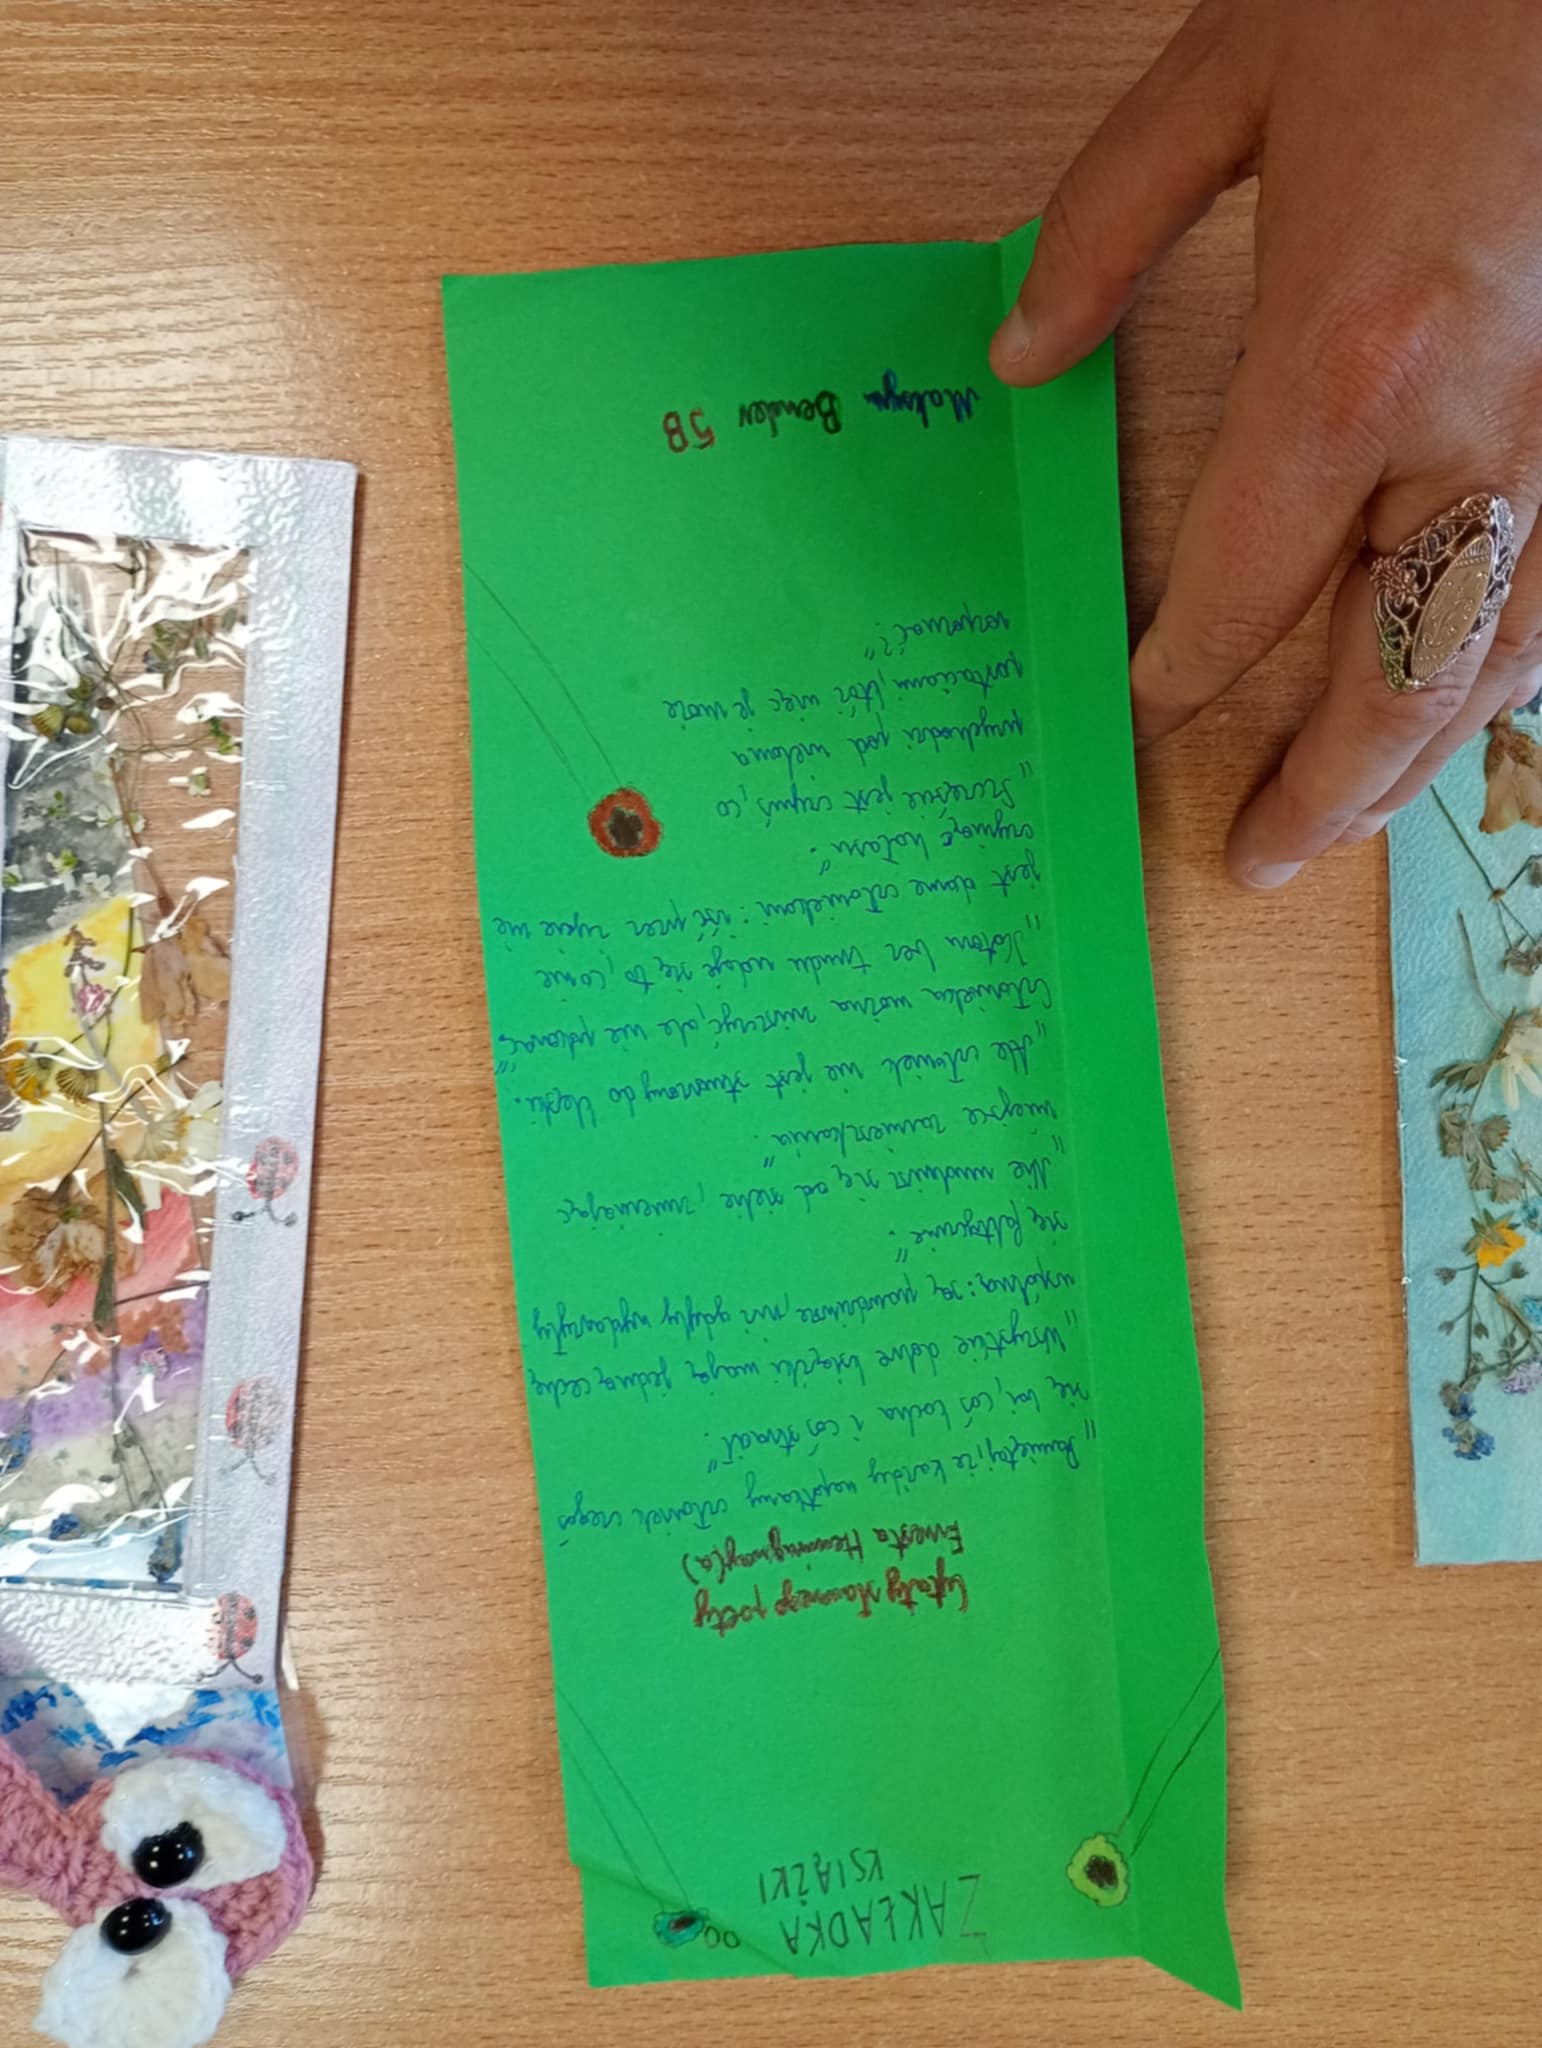 ZAKŁADKA DO
KSIĄŻKI
Cytaty sławnego poety
Ernesta Hemingway(a)
"Pamiętaj, że każdy napotkany człowiek czegoś
się boi, coś kocha i coś stracił."
"Wszystkie dobre książki mają jedną cechę
wspólną: są prawdziwsze, niż gdyby wydarzyły
się faktycznie."
"Nie uwolnisz się od siebie, zmieniając
miejsce zamieszkania."
"Ale człowiek nie jest stworzony do klęski.
Człowieka można zniszczyć, ale nie pokonać."
"Kotom bez trudu udaje się to, co nie
jest dane człowiekowi: iść przez życie nie
czyniąc hałasu."
"Szczęście jest czymś, co
przychodzi pod wieloma
postaciami, któż więc je może
rozpoznać?"
Maksym Bender 5B